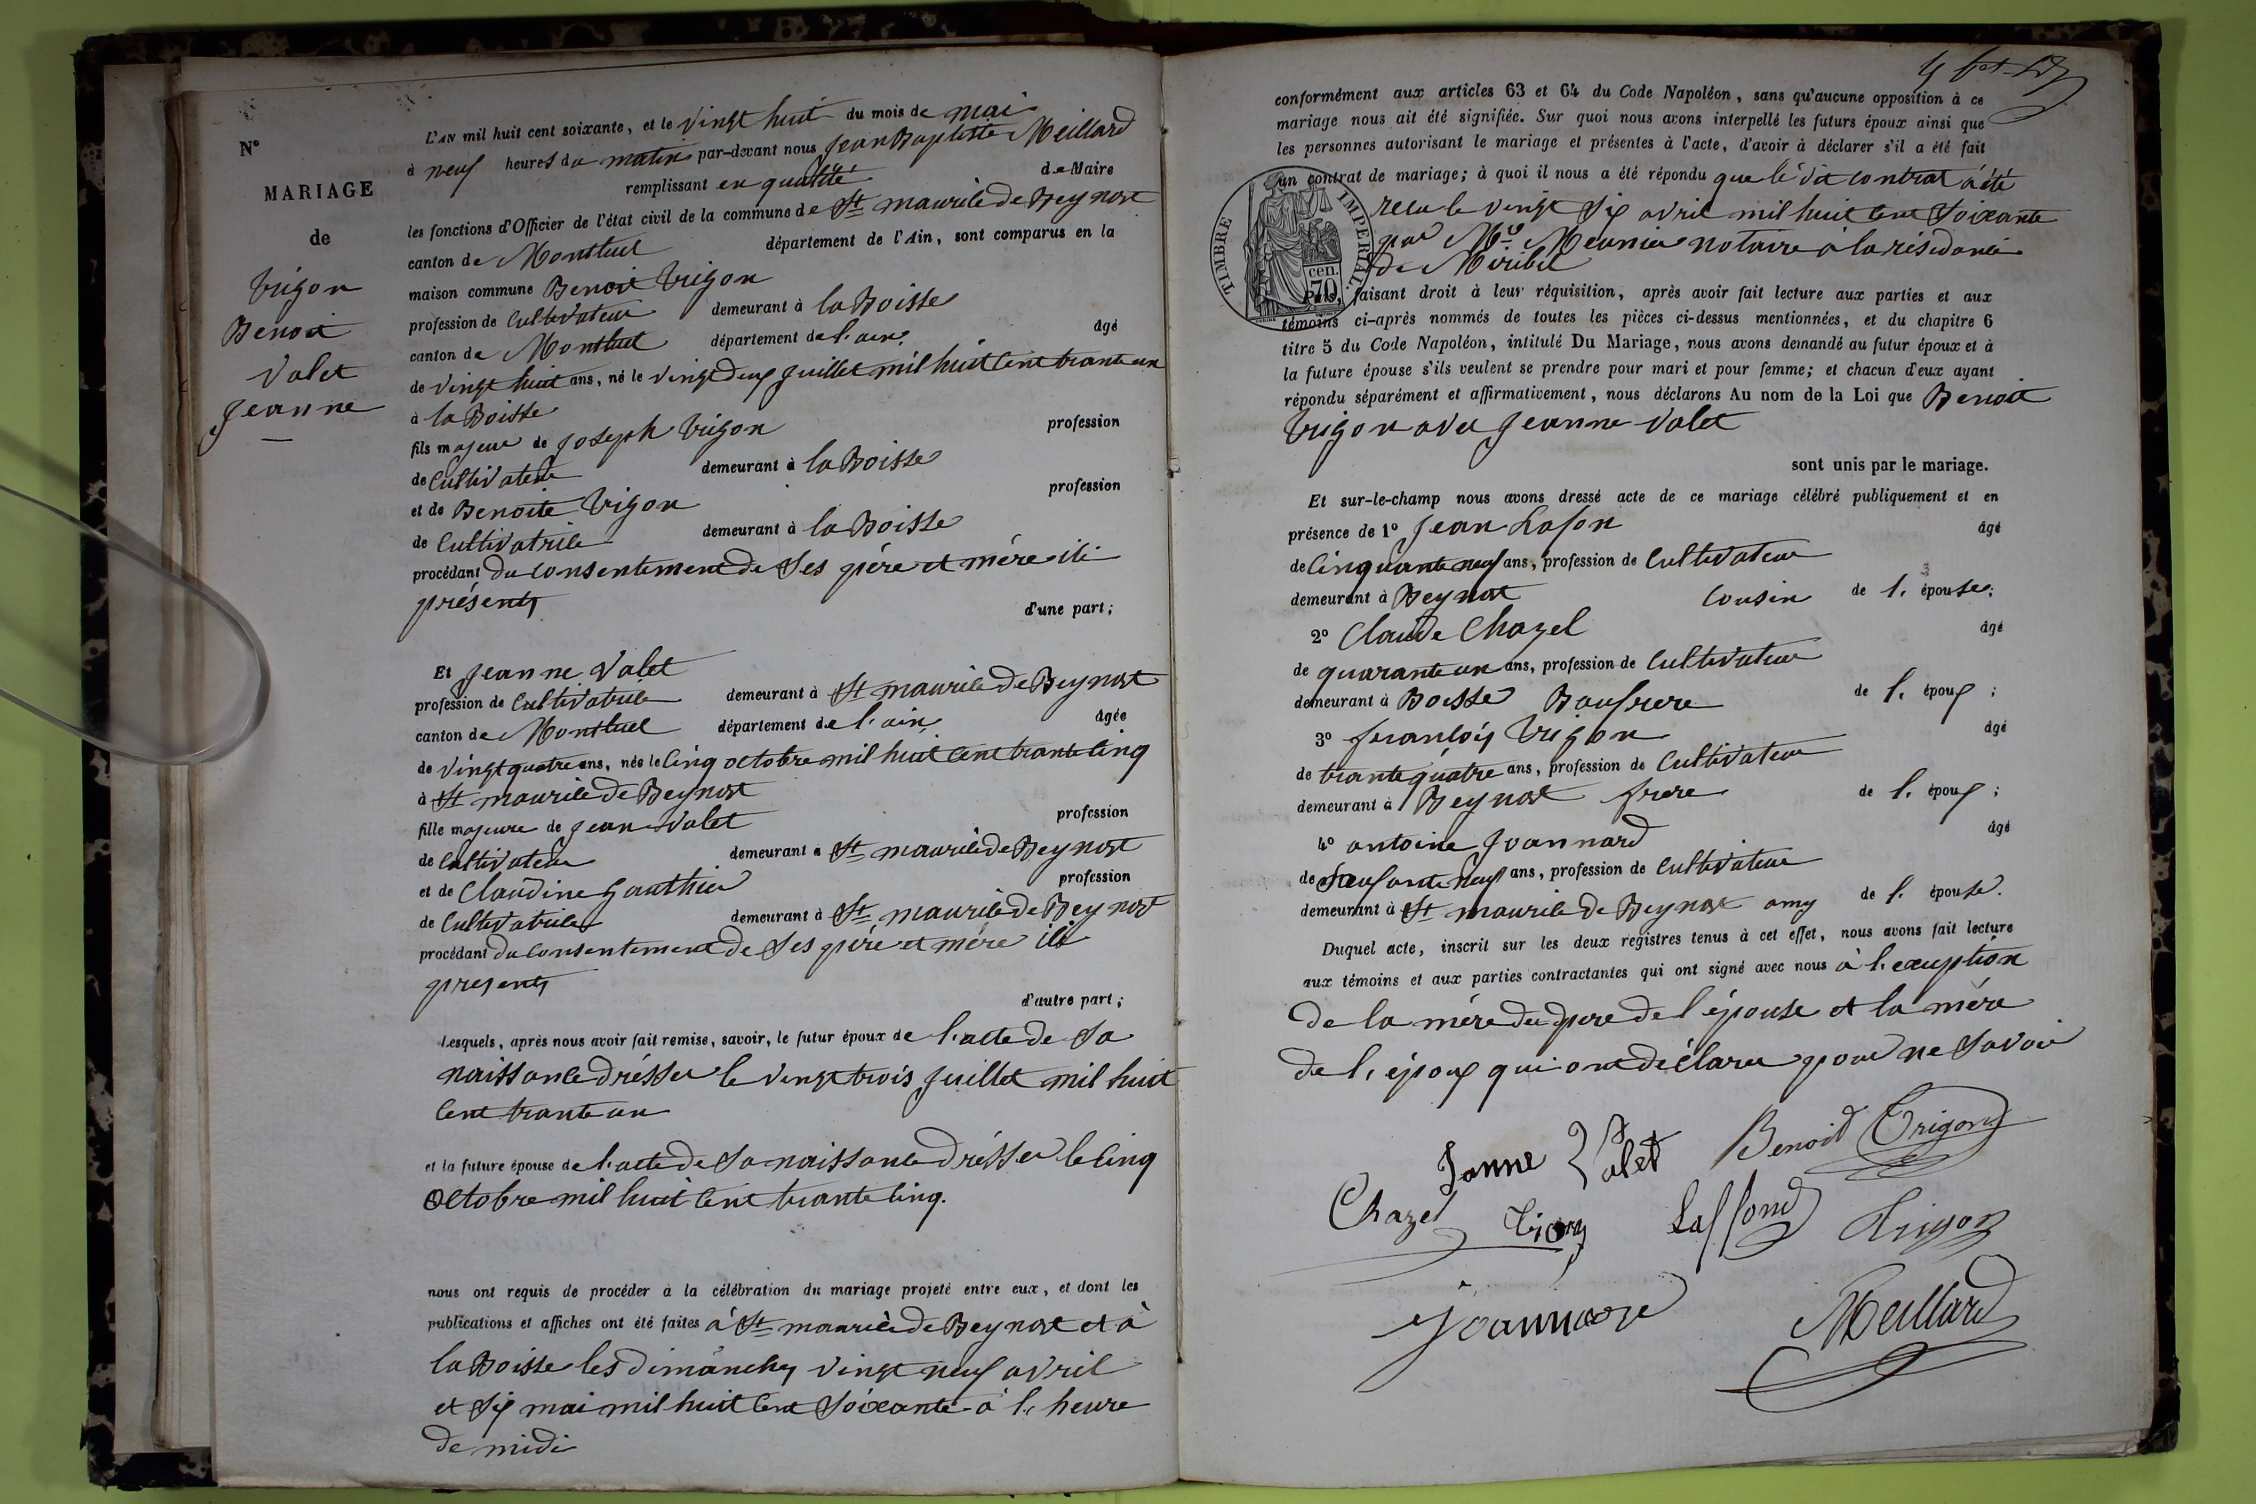 N°
MARIAGE
de
Trigon
Benoit
Valet
Jeanne
L'AN mil huit cent soixante, et le vingt huit du mois de mai
à neuf heures du matin par-devant nous Jean Baptiste Meillard
remplissant en qualité de Maire
les fonctions d'Officier de l'état civil de la commune de St maurice de Beynost
canton de Montluel département de l'Ain, sont comparus en la
maison commune Benoit Trigon
profession de Cultivateur demeurant à la Boisse
canton de Montluel département de l'ain âgé
de vingt huit ans, né le vingt deux Juillet mil huit cent trante un
à la Boisse
fils majeur de Joseph Trigon profession
de Cultivateur demeurant à la Boisse
et de Benoite Trigon profession
de Cultivatrice demeurant à la Boisse
procédant du consentement de ses père et mère ici
présents d'une part;
Et Jeanne Valet
profession de Cultivatrice demeurant à St maurice de Beynost
canton de Montluel département de l'ain âgée
de vingt quatre ans, née le cinq octobre mil huit cent trante cinq
à St maurice de Beynost
fille majeure de Jean Valet profession
de Cultivateur demeurant à St maurice de Beynost
et de Claudine Gauthier profession
de Cultivatrice demeurant à St maurice de Beynost
procédant du consentement de ses père et mère ici
presents
d'autre part;
Lesquels, après nous avoir fait remise, savoir, le futur époux de l'acte de sa
naissance drésser le vingt trois Juillet mil huit
cent trante un
et la future épouse de l'acte de sa naissance drésser le cinq
Octobre mil huit cent trante cinq.
nous ont requis de procéder à la célébration du mariage projeté entre eux, et dont les
publications et affiches ont été faites à St maurice de Beynost et à
la Boisse les dimanches vingt neuf avril
et six mai mil huit cent soixante à l'heure
de midi
conformément aux articles 63 et 64 du Code Napoléon, sans qu'aucune opposition à ce
mariage nous ait été signifiée. Sur quoi nous avons interpellé les futurs époux ainsi que
les personnes autorisant le mariage et présentes à l'acte, d'avoir à déclarer s'il a été fait
un contrat de mariage; à quoi il nous a été répondu que le dit contrat a été
recu le vingt six avril mil huit cent soixante
par Me Meunier notaire à la résidance
de Miribel
TIMBRE IMPERIAL
70 cen.
Puis, faisant droit à leur réquisition, après avoir fait lecture aux parties et aux
témoins ci-après nommés de toutes les pièces ci-dessus mentionnées, et du chapitre 6
titre 5 du Code Napoléon, intitulé Du Mariage, nous avons demandé au futur époux et à
la future épouse s'ils veulent se prendre pour mari et pour femme; et chacun d'eux ayant
répondu séparément et affirmativement, nous déclarons Au nom de la Loi que Benoit
Trigon avec Jeanne Valet
sont unis par le mariage.
Et sur-le-champ nous avons dressé acte de ce mariage célébré publiquement et en
présence de 1° Jean Lafon âgé
de Cinquante neuf ans, profession de Cultivateur
demeurant à Beynost cousin de l'épouse;
2° Claude Chazel âgé
de quarante un ans, profession de Cultivateur
demeurant à Boisse Baufrere de l'époux;
3° françois Trigon âgé
de trante quatre ans, profession de Cultivateur
demeurant à Beynost frere de l'époux;
4° antoine Joannard âgé
de neuf ans, profession de Cultivateur
demeurant à St maurice de Beynost amy de l'épouse.
Duquel acte, inscrit sur les deux registres tenus à cet effet, nous avons fait lecture
aux témoins et aux parties contractantes qui ont signé avec nous à l'exception
de la mère du pere de l'épouse et la mére
de l'époux qui ont déclaré pour ne savoir
Janne Valet Benoit Trigon
Chazel Laffond Trigon
Meillard